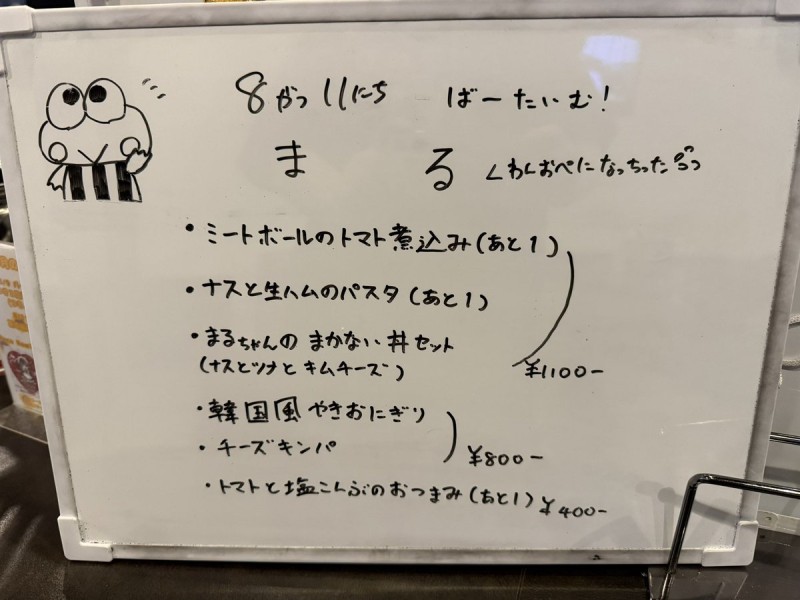 8がつ11にち ばーたいむ!
まる くわんおぺになっちった
・ミートボールのトマト煮込み(あと1)
・ナスと生ハムのパスタ(あと1)
・まるちゃんの まかない丼セット
(ナスとツナと キムチーズ)
¥1100-
・韓国風 やきおにぎり
・チーズキンパ
¥800-
・トマトと塩こんぶのおつまみ(あと1) ¥400-